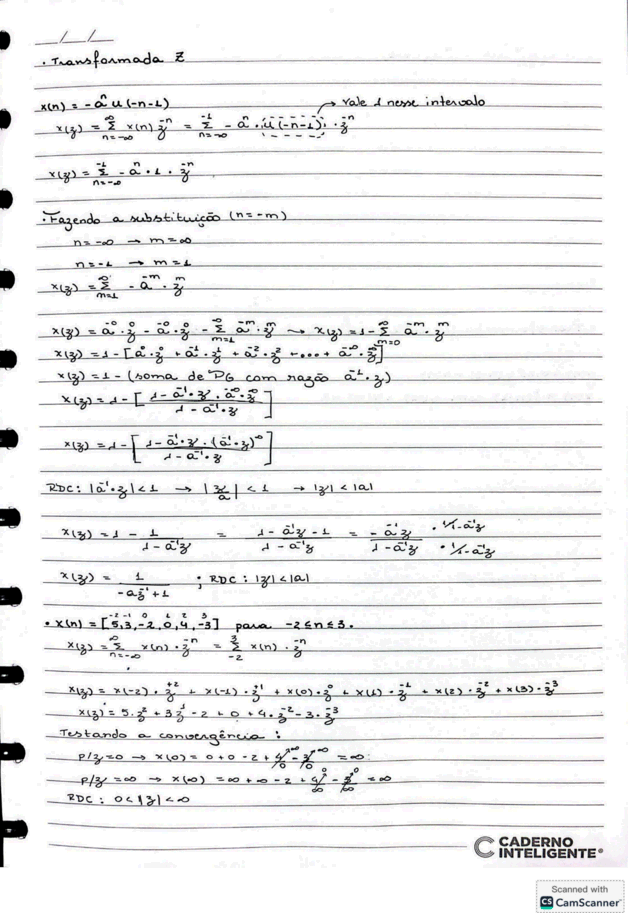 __/__/__
• Transformada Z
x(n) = -aⁿ u(-n-1) → vale 1 nesse intervalo
x(z) = Σ_{n=-∞}^{∞} x(n) z^{-n} = Σ_{n=-∞}^{-1} -aⁿ · u(-n-1) · z^{-n}
x(z) = Σ_{n=-∞}^{-1} -aⁿ · 1 · z^{-n}
• Fazendo a substituição (n=-m)
n=-∞ → m=∞
n=-1 → m=1
x(z) = Σ_{m=1}^{∞} -a^{-m} · z^{m}
x(z) = a^{-0} · z^{0} - a^{-0} · z^{0} - Σ_{m=1}^{∞} a^{-m} · z^{m} → x(z) = 1 - Σ_{m=0}^{∞} a^{-m} · z^{m}
x(z) = 1 - [a^{0} · z^{0} + a^{-1} · z^{1} + a^{-2} · z^{2} + .... + a^{-∞} · z^{∞}]
x(z) = 1 - (soma de PG com razão a^{-1} · z)
x(z) = 1 - [(1 - a^{-1} · z · a^{-∞} · z^{∞}) / (1 - a^{-1} · z)]
x(z) = 1 - [(1 - a^{-1} · z · (a^{-1} · z)^{∞}) / (1 - a^{-1} · z)]
RDC: |a^{-1} · z| < 1 → |z/a| < 1 → |z| < |a|
x(z) = 1 - 1/(1 - a^{-1}z) = (1 - a^{-1}z - 1)/(1 - a^{-1}z) = (-a^{-1}z)/(1 - a^{-1}z) · (1/-a^{-1}z)/(1/-a^{-1}z)
x(z) = 1/(-az^{-1} + 1) ; RDC: |z| < |a|
-2 -1 0 1 2 3
• x(n) = [5, 3, -2, 0, 4, -3] para -2 ≤ n ≤ 3.
x(z) = Σ_{n=-∞}^{∞} x(n) · z^{-n} = Σ_{-2}^{3} x(n) · z^{-n}
x(z) = x(-2) · z^{+2} + x(-1) · z^{+1} + x(0) · z^{0} + x(1) · z^{-1} + x(2) · z^{-2} + x(3) · z^{-3}
x(z) = 5 · z^{2} + 3z^{1} - 2 + 0 + 4 · z^{-2} - 3 · z^{-3}
Testando a convergência :
p/z=0 → x(0) = 0 + 0 - 2 + 4/0 - 3/0 = ∞
p/z=∞ → x(∞) = ∞ + ∞ - 2 + 4/∞ - 3/∞ = ∞
RDC: 0 < |z| < ∞
CADERNO
INTELIGENTE®
Scanned with
CS CamScanner